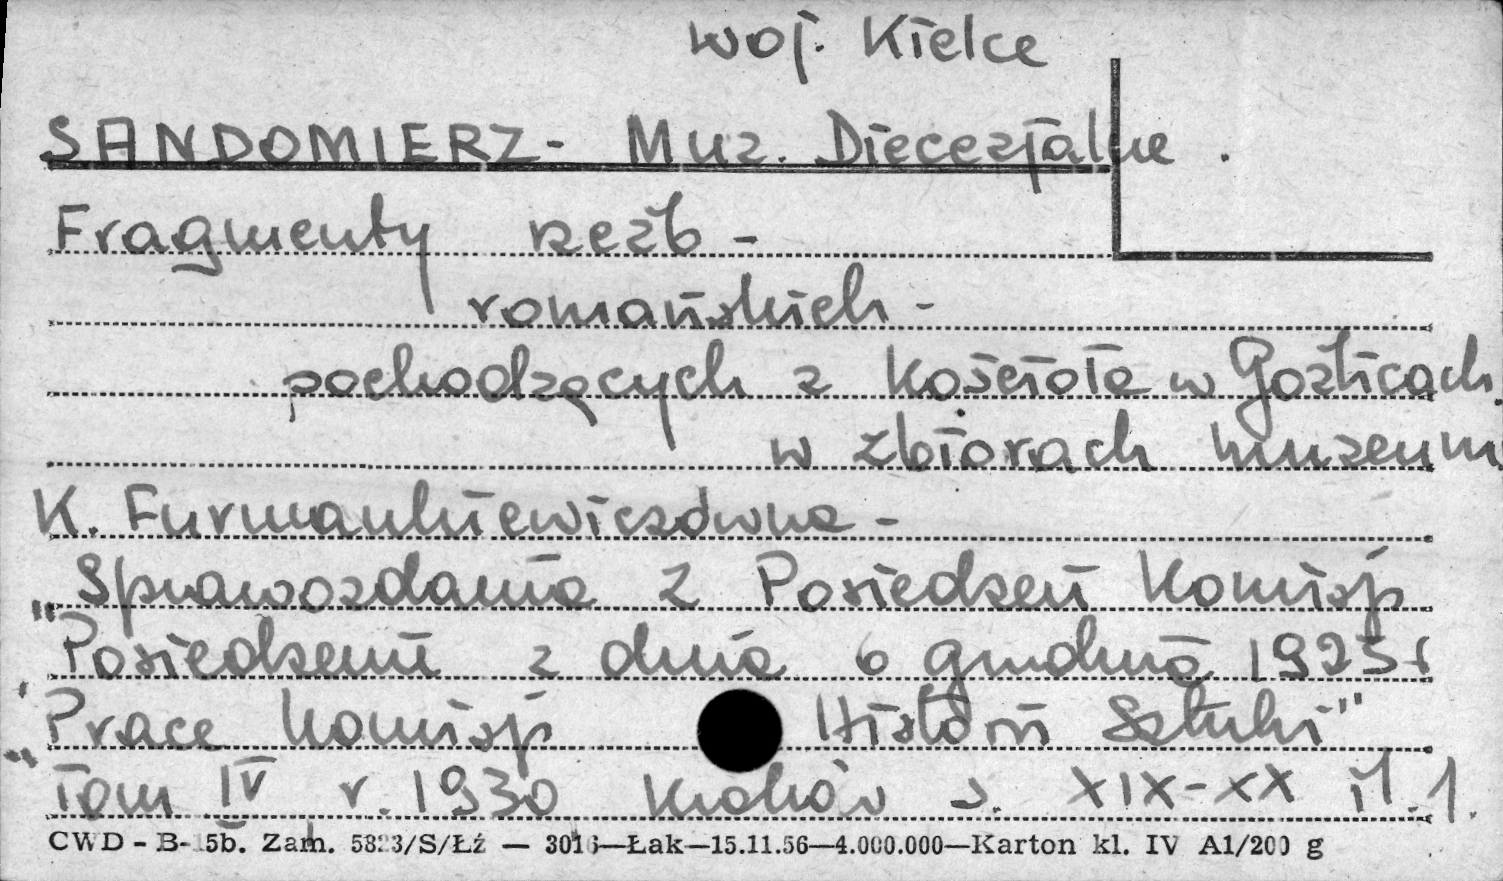 woj. Kielce
SANDOMIERZ - Muz. Diecezjalne.
Fragmenty rzeźb -
romańskich -
pochodzących z kościoła w Goźlicach.
w zbiorach muzeum
K. Furmankiewiczówna -
"Sprawozdania z Posiedzeń Komisji
Posiedzenie z dnia 6 grudnia 1925 r
"Prace Komisji Historii Sztuki"
Tom IV r. 1930 Kraków s. XIX-XX il. 1.
CWD - B-15b. Zam. 5823/S/Łź — 3016—Łak—15.11.56—4.000.000—Karton kl. IV A1/200 g